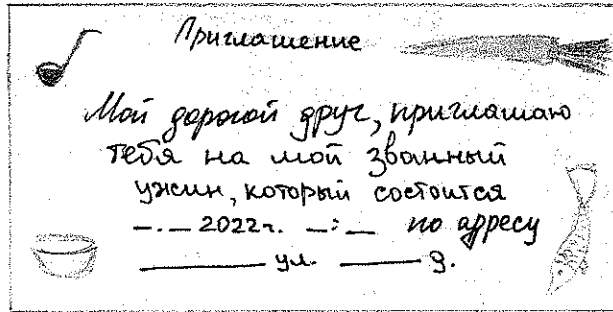 Приглашение
Мой дорогой друг, приглашаю
тебя на мой званный
ужин, который состоится
_._ 2022г. _:_ по адресу
_____ ул. ____ д.